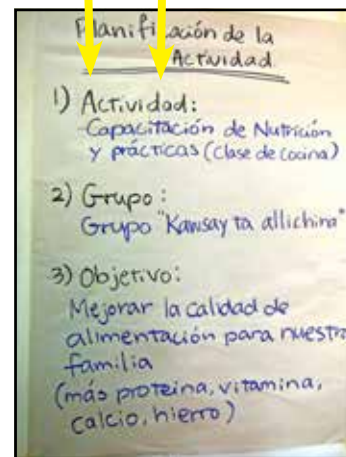 Planificación de la
Actividad
1) Actividad:
-Capacitación de Nutrición
y prácticas (clase de cocina)
2) Grupo:
Grupo "Kawsay ta allichina"
3) Objetivo:
Mejorar la calidad de
alimentación para nuestra
familia
(más proteina, vitamina,
calcio, hierro)